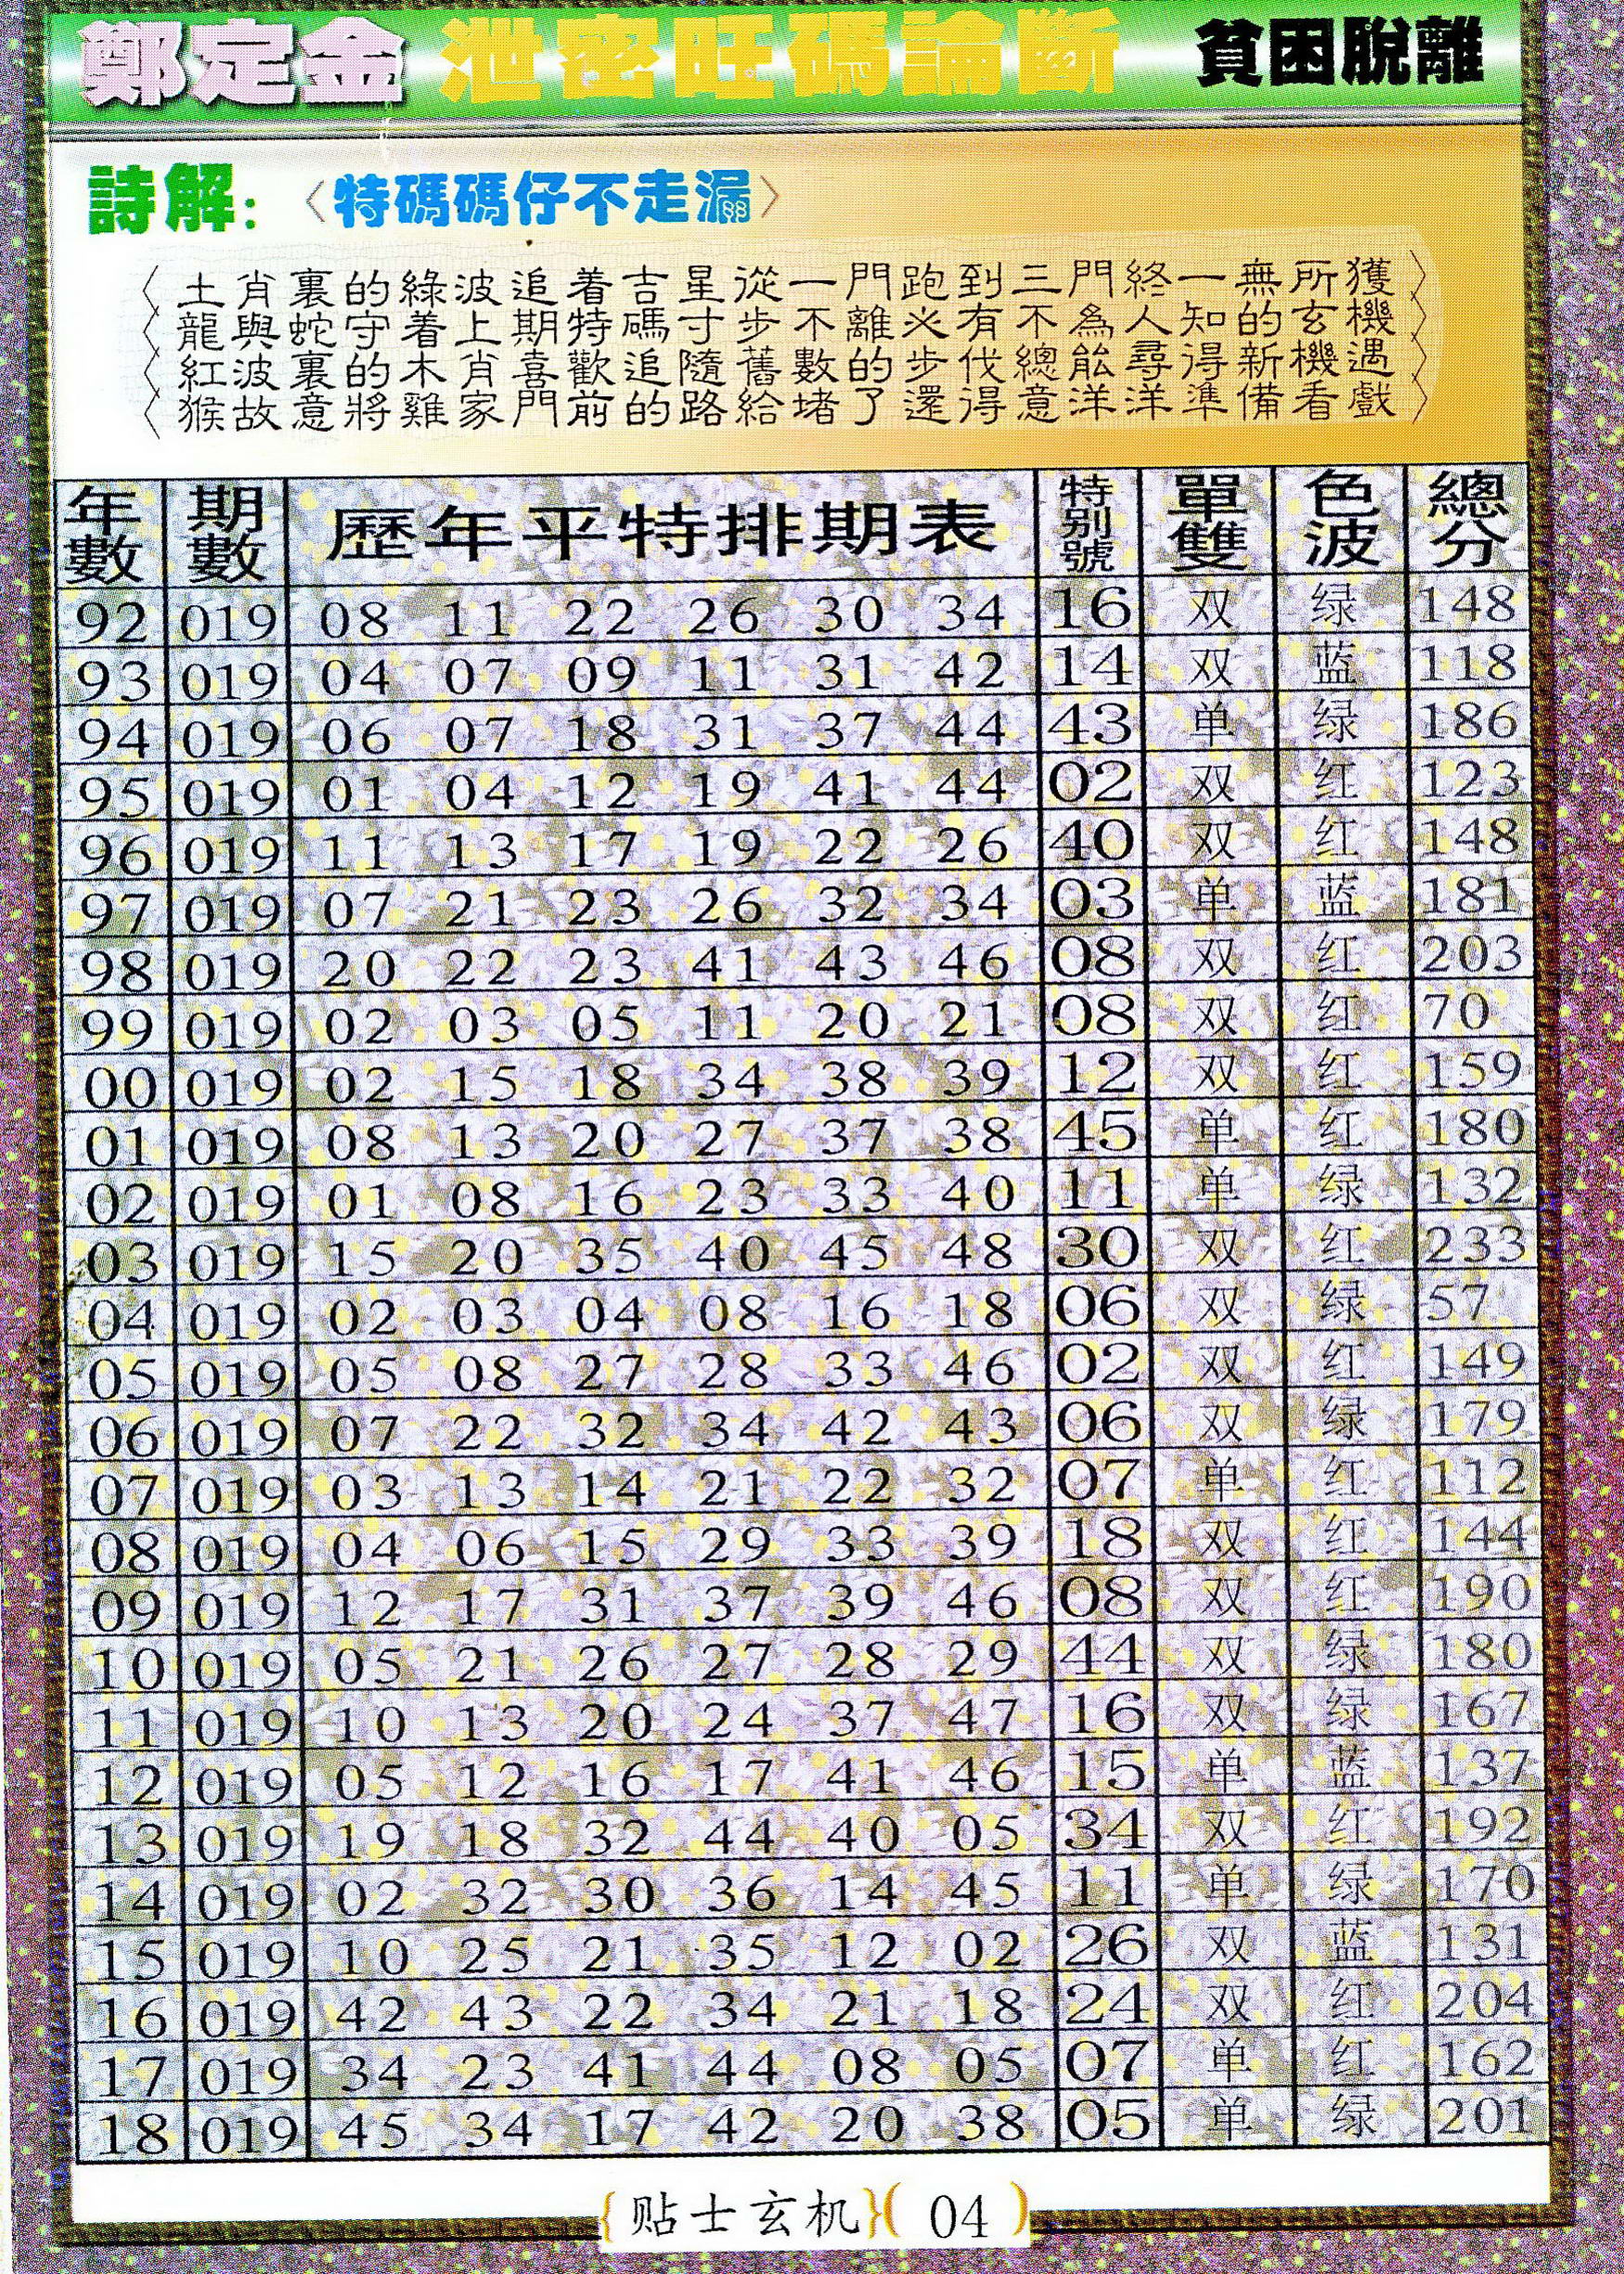 鄭定金 泄密旺碼論斷 貧困脫離
詩解：〈特碼碼仔不走漏〉
〈土肖裏的綠波追着吉星從一門跑到三門終一無所獲〉
〈龍與蛇守着上期特碼寸步不離必有不為人知的玄機〉
〈紅波裏的木肖喜歡追隨舊數的步伐總能尋得新機遇〉
〈猴故意將雞家門前的路給堵了還得意洋洋準備看戲〉
年數 期數 歷年平特排期表 特别號 單雙 色波 總分
92 019 08 11 22 26 30 34 16 双 绿 148
93 019 04 07 09 11 31 42 14 双 蓝 118
94 019 06 07 18 31 37 44 43 单 绿 186
95 019 01 04 12 19 41 44 02 双 红 123
96 019 11 13 17 19 22 26 40 双 红 148
97 019 07 21 23 26 32 34 03 单 蓝 181
98 019 20 22 23 41 43 46 08 双 红 203
99 019 02 03 05 11 20 21 08 双 红 70
00 019 02 15 18 34 38 39 12 双 红 159
01 019 08 13 20 27 37 38 45 单 红 180
02 019 01 08 16 23 33 40 11 单 绿 132
03 019 15 20 35 40 45 48 30 双 红 233
04 019 02 03 04 08 16 18 06 双 绿 57
05 019 05 08 27 28 33 46 02 双 红 149
06 019 07 22 32 34 42 43 06 双 绿 179
07 019 03 13 14 21 22 32 07 单 红 112
08 019 04 06 15 29 33 39 18 双 红 144
09 019 12 17 31 37 39 46 08 双 红 190
10 019 05 21 26 27 28 29 44 双 绿 180
11 019 10 13 20 24 37 47 16 双 绿 167
12 019 05 12 16 17 41 46 15 单 蓝 137
13 019 19 18 32 44 40 05 34 双 红 192
14 019 02 32 30 36 14 45 11 单 绿 170
15 019 10 25 21 35 12 02 26 双 蓝 131
16 019 42 43 22 34 21 18 24 双 红 204
17 019 34 23 41 44 08 05 07 单 红 162
18 019 45 34 17 42 20 38 05 单 绿 201
{贴士玄机}(04)